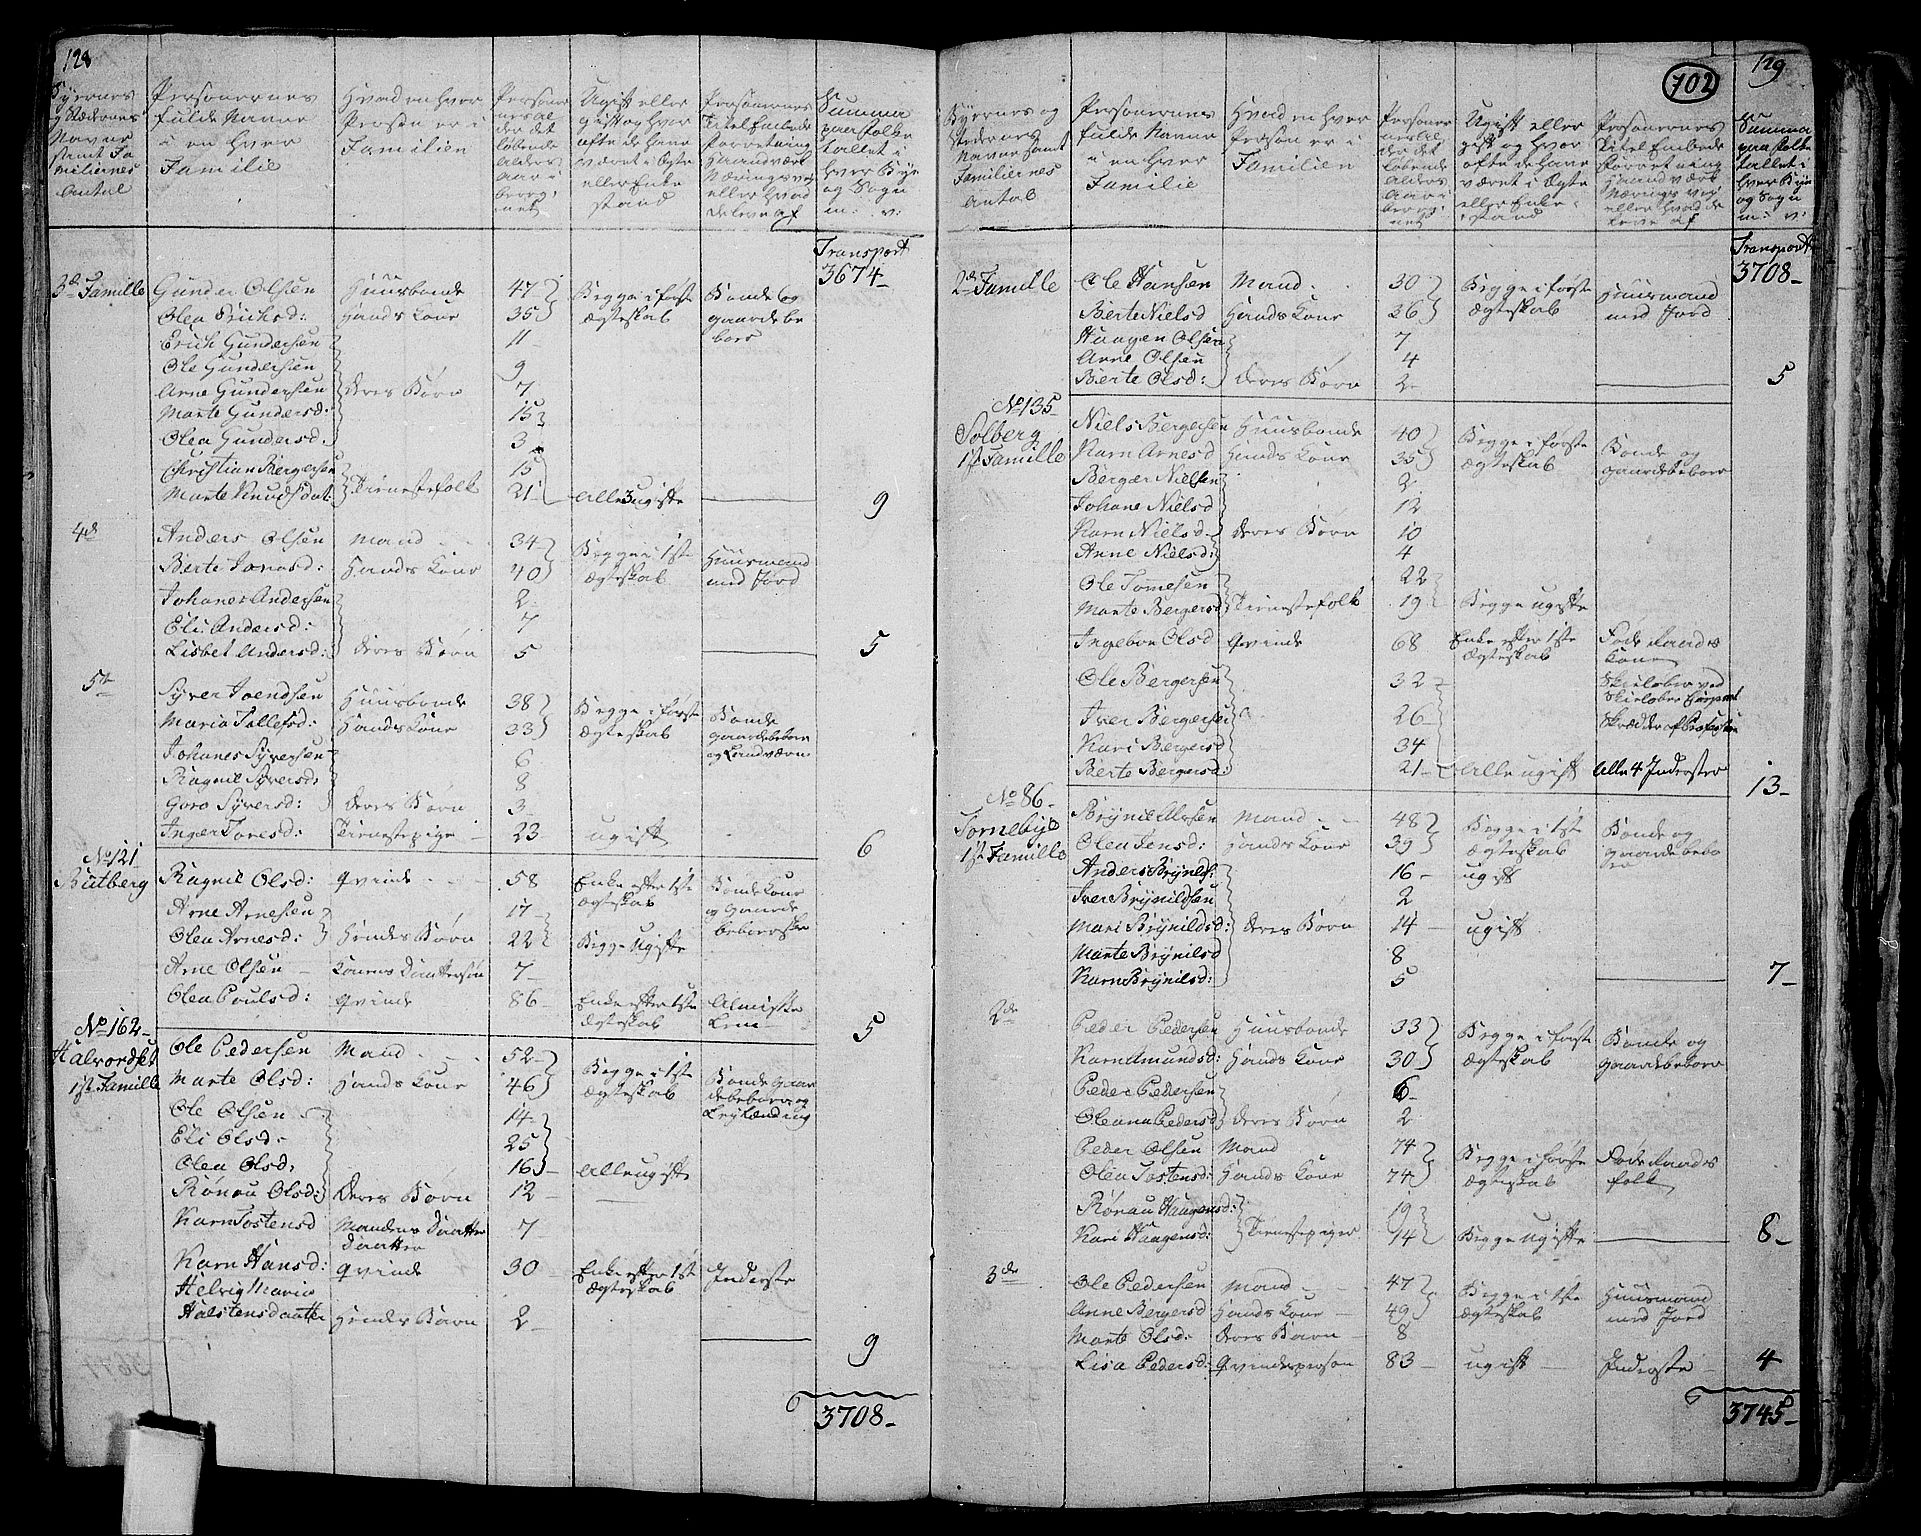 128
Byernes og Stædernes Navne samt Familiernes Antal
Personernes fulde Navne i en hver Familie
Hvad en hver Person er i Familien
Personernes Alder det løbende Alders Aar iberegnet
Ugift eller gift og hvor ofte de have været i Ægte eller Enkestand
Personernes Titel Embede Forretning Haandværk Næringsvej eller hvad de leve af
Summa paa folketallet i hver Bye og Sogn
m: v:
Transport
3674
3de Familie Gunder Olsen Huusbonde 47 Begge i første Ægteskab Bonde og gaardbeboer
Olea Erichsd: Hands Kone 35
Erich Gundersen 11
Ole Gundersen 9
Arne Gundersen deres Børn 7
Marte Gundersd: 15
Olea Gundersd. 3
Christian Bergersen 15
Marte Knudsdat: Tienestefolk 21 alle 3 ugifte 9
4de Anders Olsen Mand 34 Begge i 1ste Ægteskab Huusmand med Jord
Berte Jonasd: Hands Kone 40
Johanes Andersen 2
Eli Andersd: 7
Lisbet Andersd: deres Børn 5 5
5te Syver Svendsen Huusbonde 38 Begge i første Ægteskab Bonde gaardbeboer og Landværn
Maria Tollefsd: Hands Kone 33
Johanes Syversen 6
Ragnil Syversd: 8
Goro Syversd: deres Børn 3
Inger Toresd: Tienestepige 23 ugift 6
No 121
Butberg Ragnil Olsd: Qvinde 58 Enke efter 1ste Ægteskab Bonde Kone og Gaardebeboerske
Arne Arnesen 17
Olea Arnesd: Hendes Børn 22 Begge ugifte
Arne Olsen Konens Daattersøn 7
Olea Poulsd: Qvinde 86 Enke efter 1ste Ægteskab Almisse Lem 5
No 162
Halvordset
1ste Familie Ole Pedersen Mand 52 Begge i 1ste Ægteskab Bonde gaardebeboer og
Marte Olsd: Hands Kone 46
Ole Olsen 14
Eli Olsd: 25
Olea Olsd: 16 alle ugifte
Rønau Olsd: Deres Børn 12
Karn Tostensd Mandens Daatter Daatter 7
Karn Hansd: Qvinde 30 Enke efter 1ste Ægteskab Inderste
Helvig Maria
Halstensdaatter Hendes Barn 2 9
3708
129
702
Byernes og Stedernes Navne samt Familiernes Antal
Personernes fulde Navne i en hver Familie
Hvad en hver Person er i Familien
Personernes Alder det løbende Alders Aar iberegnet
Ugift eller gift og hvor ofte de have været i Ægte eller Enkestand
Personernes Titel Embede Forretning Haandværk Nærings vej eller hvad de leve af
Summa paa folketallet i hver Bye og Sogn
m: v:
Transport
3708
2de Familie Ole Hansen Mand 30 Begge i første Ægteskab Huusmand med Jord
Berte Nielsd Hands Kone 36
Haagen Olsen 7
Arne Olsen 4
Berte Olsd: deres Børn 2 5
No 135
Solberg
1ste Familie Niels Bergersen Huusbonde 40 Begge i første Ægteskab Bonde og gaardebeboer
Karn Arnesd Hands Kone 35
Berger Nielsen 2
Johane Nielsd 12
Karn Nielsd deres Børn 10
Anne Nielsd: 4
Ole Tomesen 22
Marte Bergersd Tienestefolk 19 Begge ugifte
Ingebor Olsd Qvinde 68 Enke efter 1ste Ægteskab Føderaads Kone
Ole Bergersen 32 Skieløber ved Skieløber Corpset
Iver Bergersen 26 Skrædder af Profession
Kari Bergersd 34
Berte Bergersd: 21 alle ugift Alle 4 Inderster 13
No 86
Tornebye
1ste Familie Brynil Mand 48 Begge i 1ste Ægteskab Bonde og gaardebeboer
Olea Jensd: Hands Kone 39
Anders Brynilds: 16 ugift
Iver Brynildsen 2
Mari Brynildsd: deres Børn 14 ugift
Marte Brynilsd 8
Karn Brynilsd: 5 7
2de Peder Pedersen Huusbonde 33 Begge i første Ægteskab Bonde og gaardebeboer
Karn Amundsd: Hands Kone 30
Peder Pedersen 6
Oleana Pedersd: deres Børn 2
Peder Olsen Mand 74 Begge i første Ægteskab Føderaads folk
Olea Tostensd: Hands Kone 74
Rønau Haagensd: 19
Kari Haagensd: Tienestepiger 14 Begge ugifte 8
3de Ole Pedersen Mand 47 Begge i 1ste Ægteskab Huusmand med Jord
Anne Bergersd Hands Kone 49
Marte Olsd: deres Barn 8
Lisa Pedersd: Qvindeperson 83 ugift Inderste 4
3745